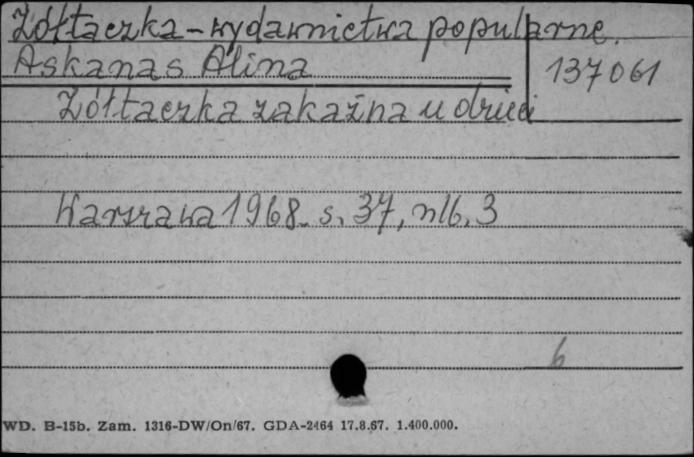 Żółtaczka - wydawnictwa popularne.
Askanas Alina
137061
Żółtaczka zakaźna u dzieci
Warszawa 1968. s. 37, nlb. 3
6
WD. B-15b. Zam. 1316-DW/On/67. GDA-2464 17.8.67. 1.400.000.